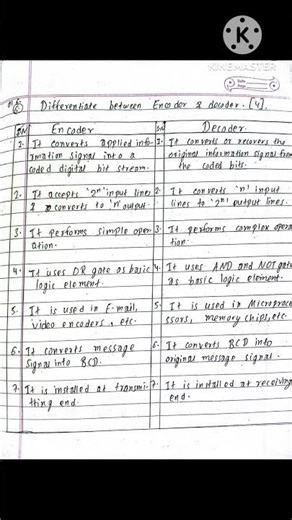 K
KINEMASTER
Date
Page
Differentiate between Encoder & decoder. [4].
SN Encoder SN Decoder
1. It converts applied info- 1. It converts or recovers the
rmation signal into a original information signal from
coded digital bit stream. the coded bits.
2. It accepts '2ⁿ' input lines 2. It converts 'n' input
& converts to 'n' output. lines to '2ⁿ' output lines.
3. It performs simple oper- 3. It performs complex opera-
ation. tion.
4. It uses OR gate as basic 4. It uses AND and NOT gate
logic element. as basic logic element.
5. It is used in E-mail, 5. It is used in Microproce-
video encoders, etc. ssors, memory chips, etc.
6. It converts message 6. It converts BCD into
signal into BCD. original message signal.
7. It is installed at transmi- 7. It is installed at receiving
tting end. end.